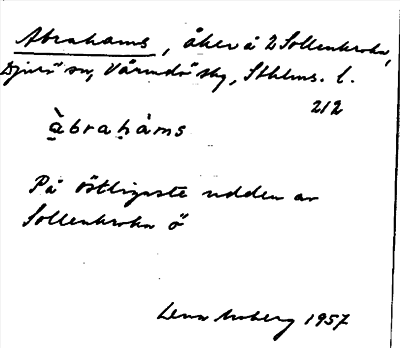 Abrahams, åker å 2 Sollenkroka,
Djurö sn, Värmdö skg, Sthlms. l.
212
àbrahàms
På östligaste udden av
Sollenkroka ö
Lena Moberg 1957